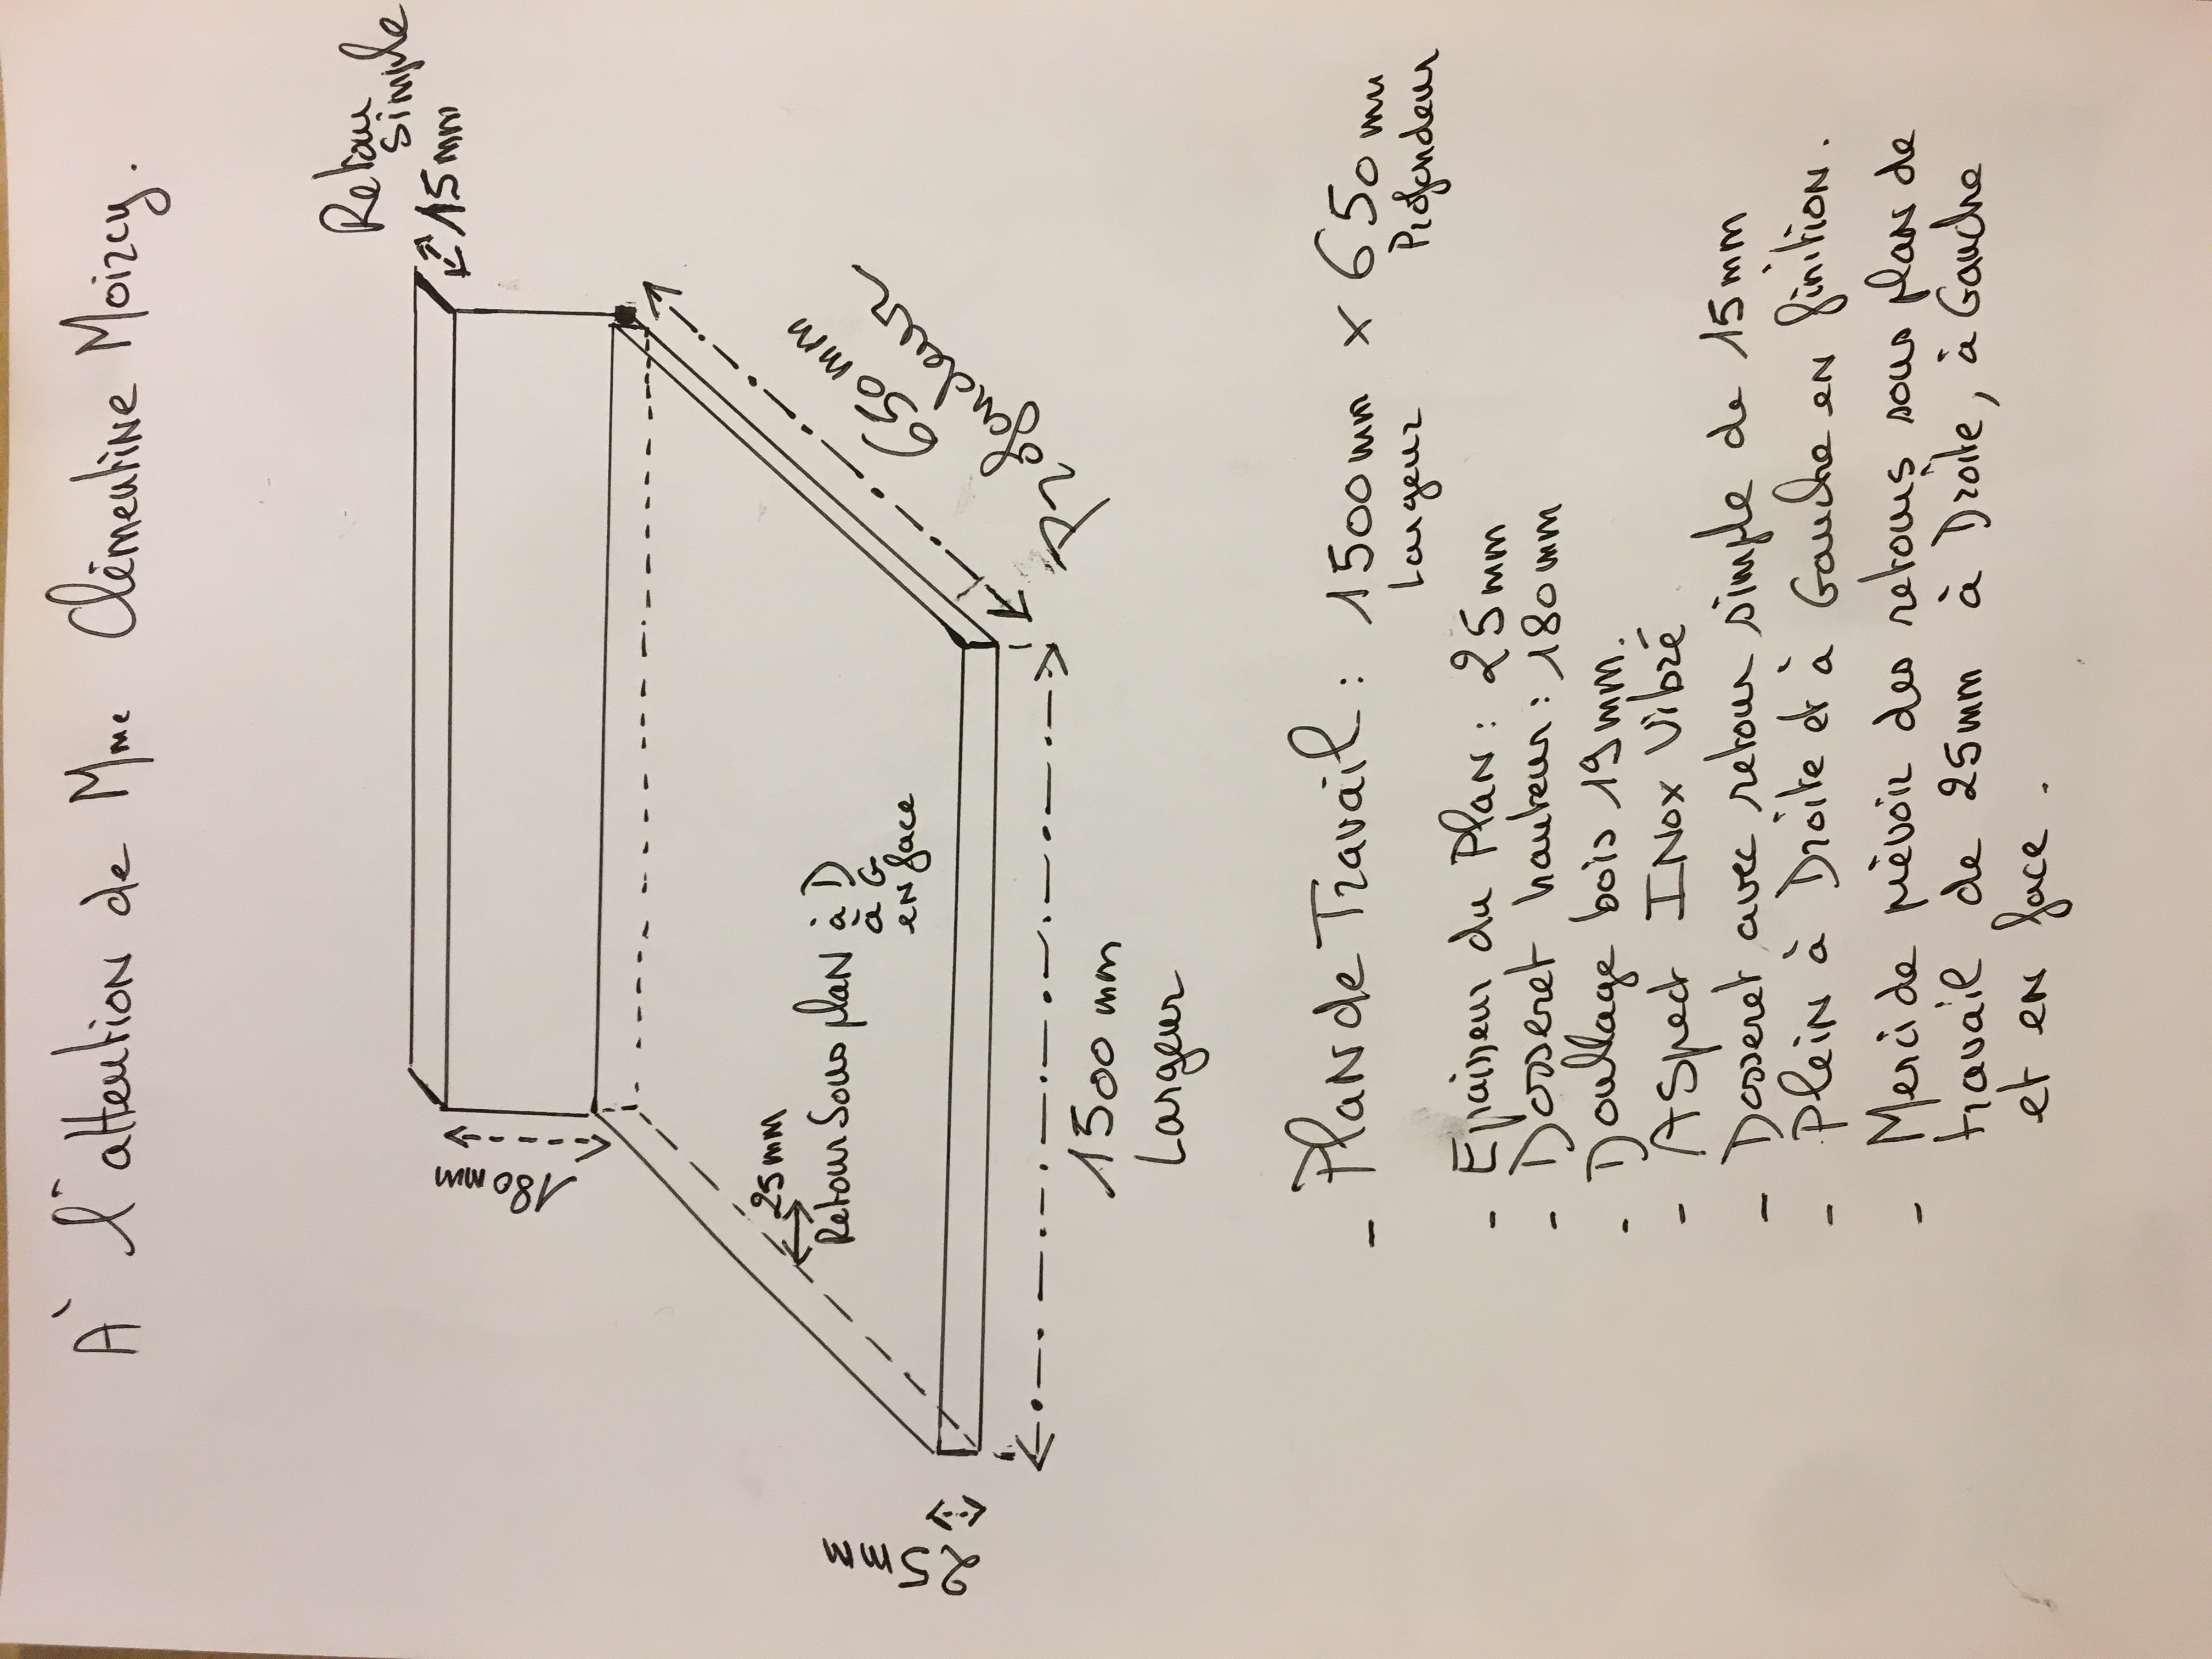 À l'attention de Mme Clémentine Moizcy.
Retour
simple
15 mm
180 mm
650 mm
Profondeur
25 mm
Retour Sous plan à D
à G
en face
25
mm
1500 mm
Largeur
- Plan de Travail : 1500 mm x 650 mm
Largeur Profondeur
- Epaisseur du Plan : 25 mm
- Dosseret hauteur : 180 mm
- Doublage bois 19 mm.
- Aspect Inox Vibré
- Dosseret avec retour simple de 15 mm
- Plein à Droite et à Gauche en finition.
- Merci de prévoir des retours sous plan de
travail de 25 mm à Droite, à Gauche
et en face.